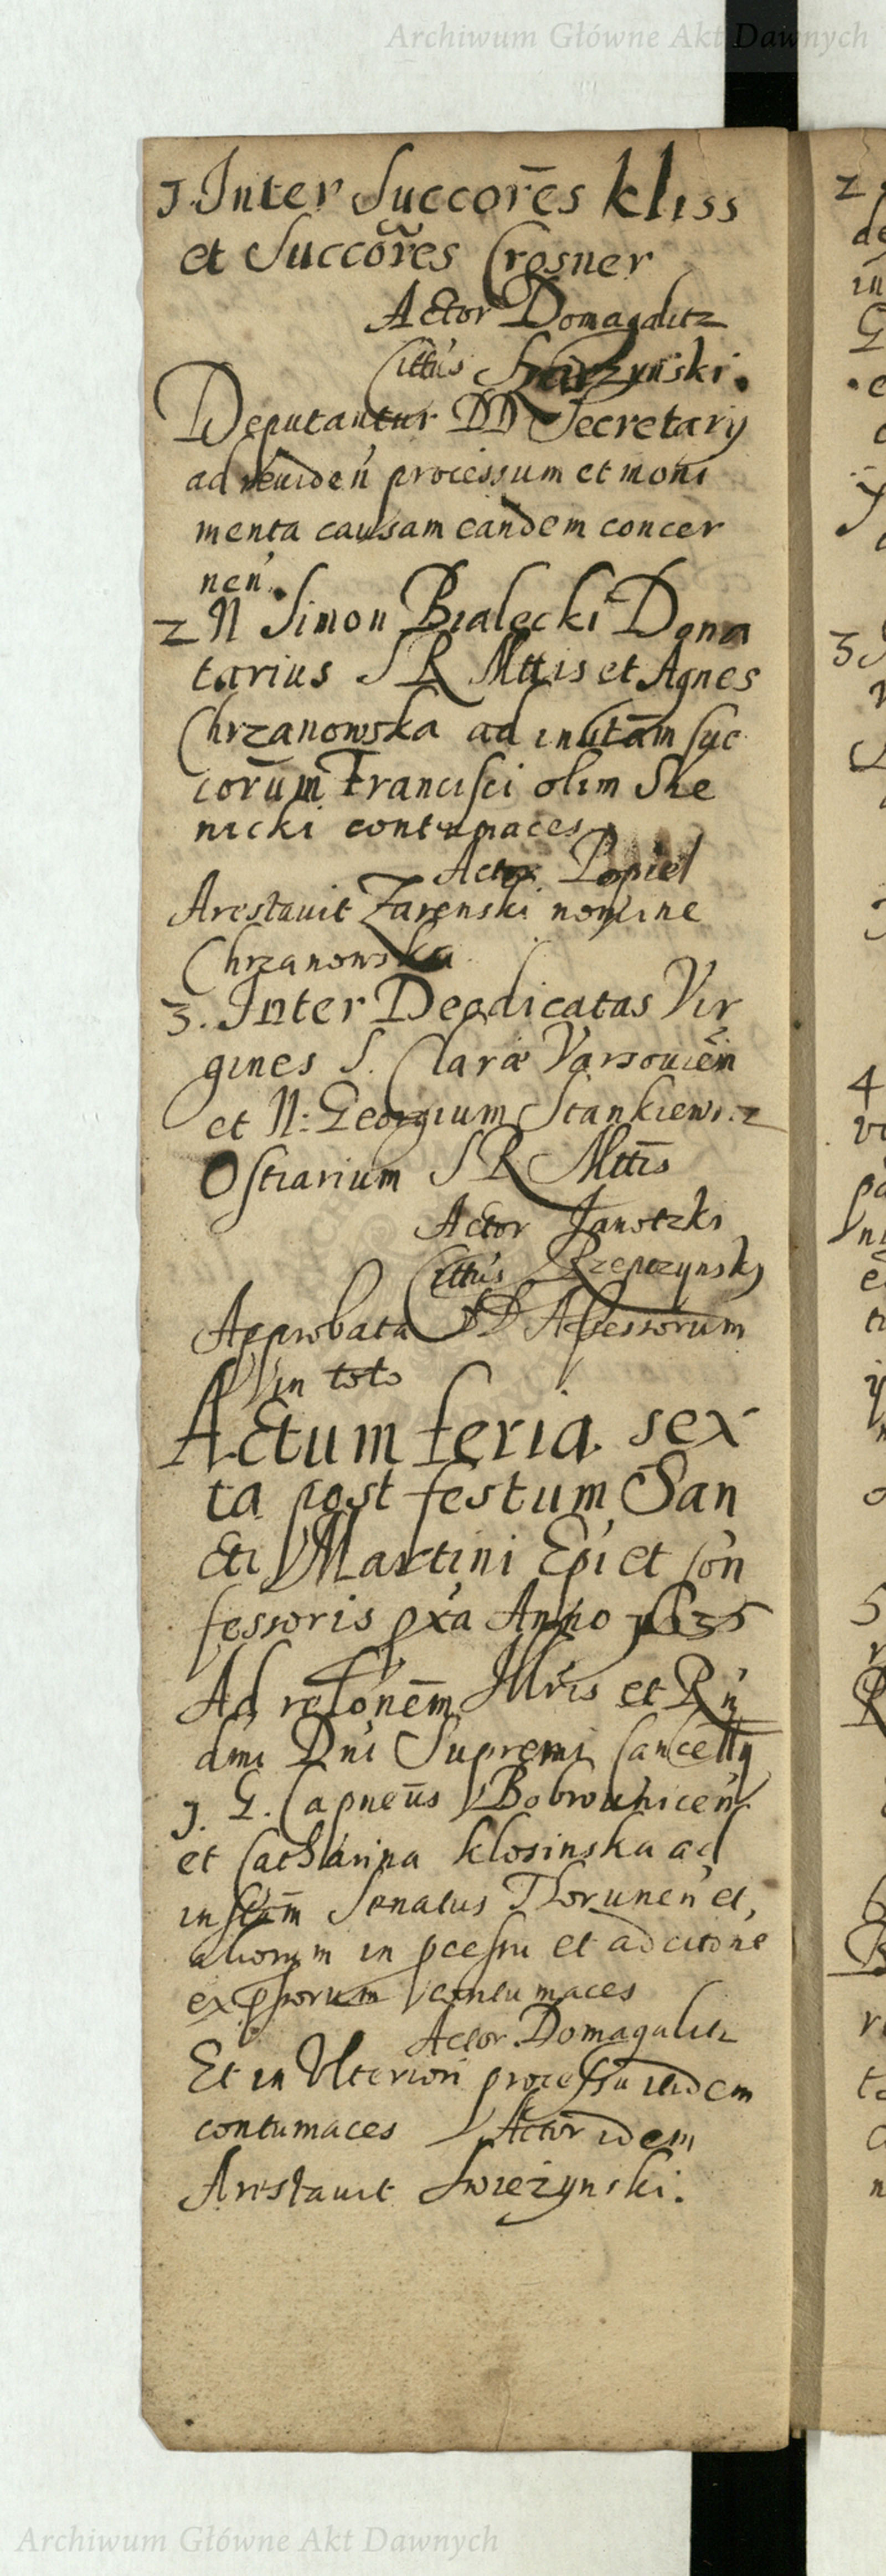 Archiwum Główne Akt Dawnych
1. Inter Succorēs Kliss
et Succorēs Crosner
Actor Domagalitz
Cittus
Deputantur DD Secretarÿ
ad reuiden processum et moni
menta causam eandem concer
nen.
2 N Simon Bialecki Dona
tarius S R Mttis et Agnes
Chrzanowska ad instām suc
corūm Francisci olim Ske
nicki contumaces
Actor Popiel
Arestauit Zarenski nomine
Chrzanowska
3. Inter Deodicatas Vir
gines S. Claræ Varsouien
et N: Georgium Stankiewicz
Ostiarium S R Mttis
Actor Janotzki
Cittus Rzepczynsky
Approbata DD Assessorum
in toto
Actum feria sex
ta post festum San
cti Martini Epi et Con
fessoris pxa Anno 1635
Ad relōnēm Illris et Rn
dmi Dni Supremi Cancellÿ
1. G. Capneūs Bobrownicen
et Catharina Klosinska ad
instām Senatus Thorunen et
aliorum in pcessu et ad citōne
expssorum contumaces
Actor Domagalitz
Et in Vlteriori processu iidem
contumaces Actor idem
Arestauit Swiezynski.
2
3
4
5
6
Archiwum Główne Akt Dawnych